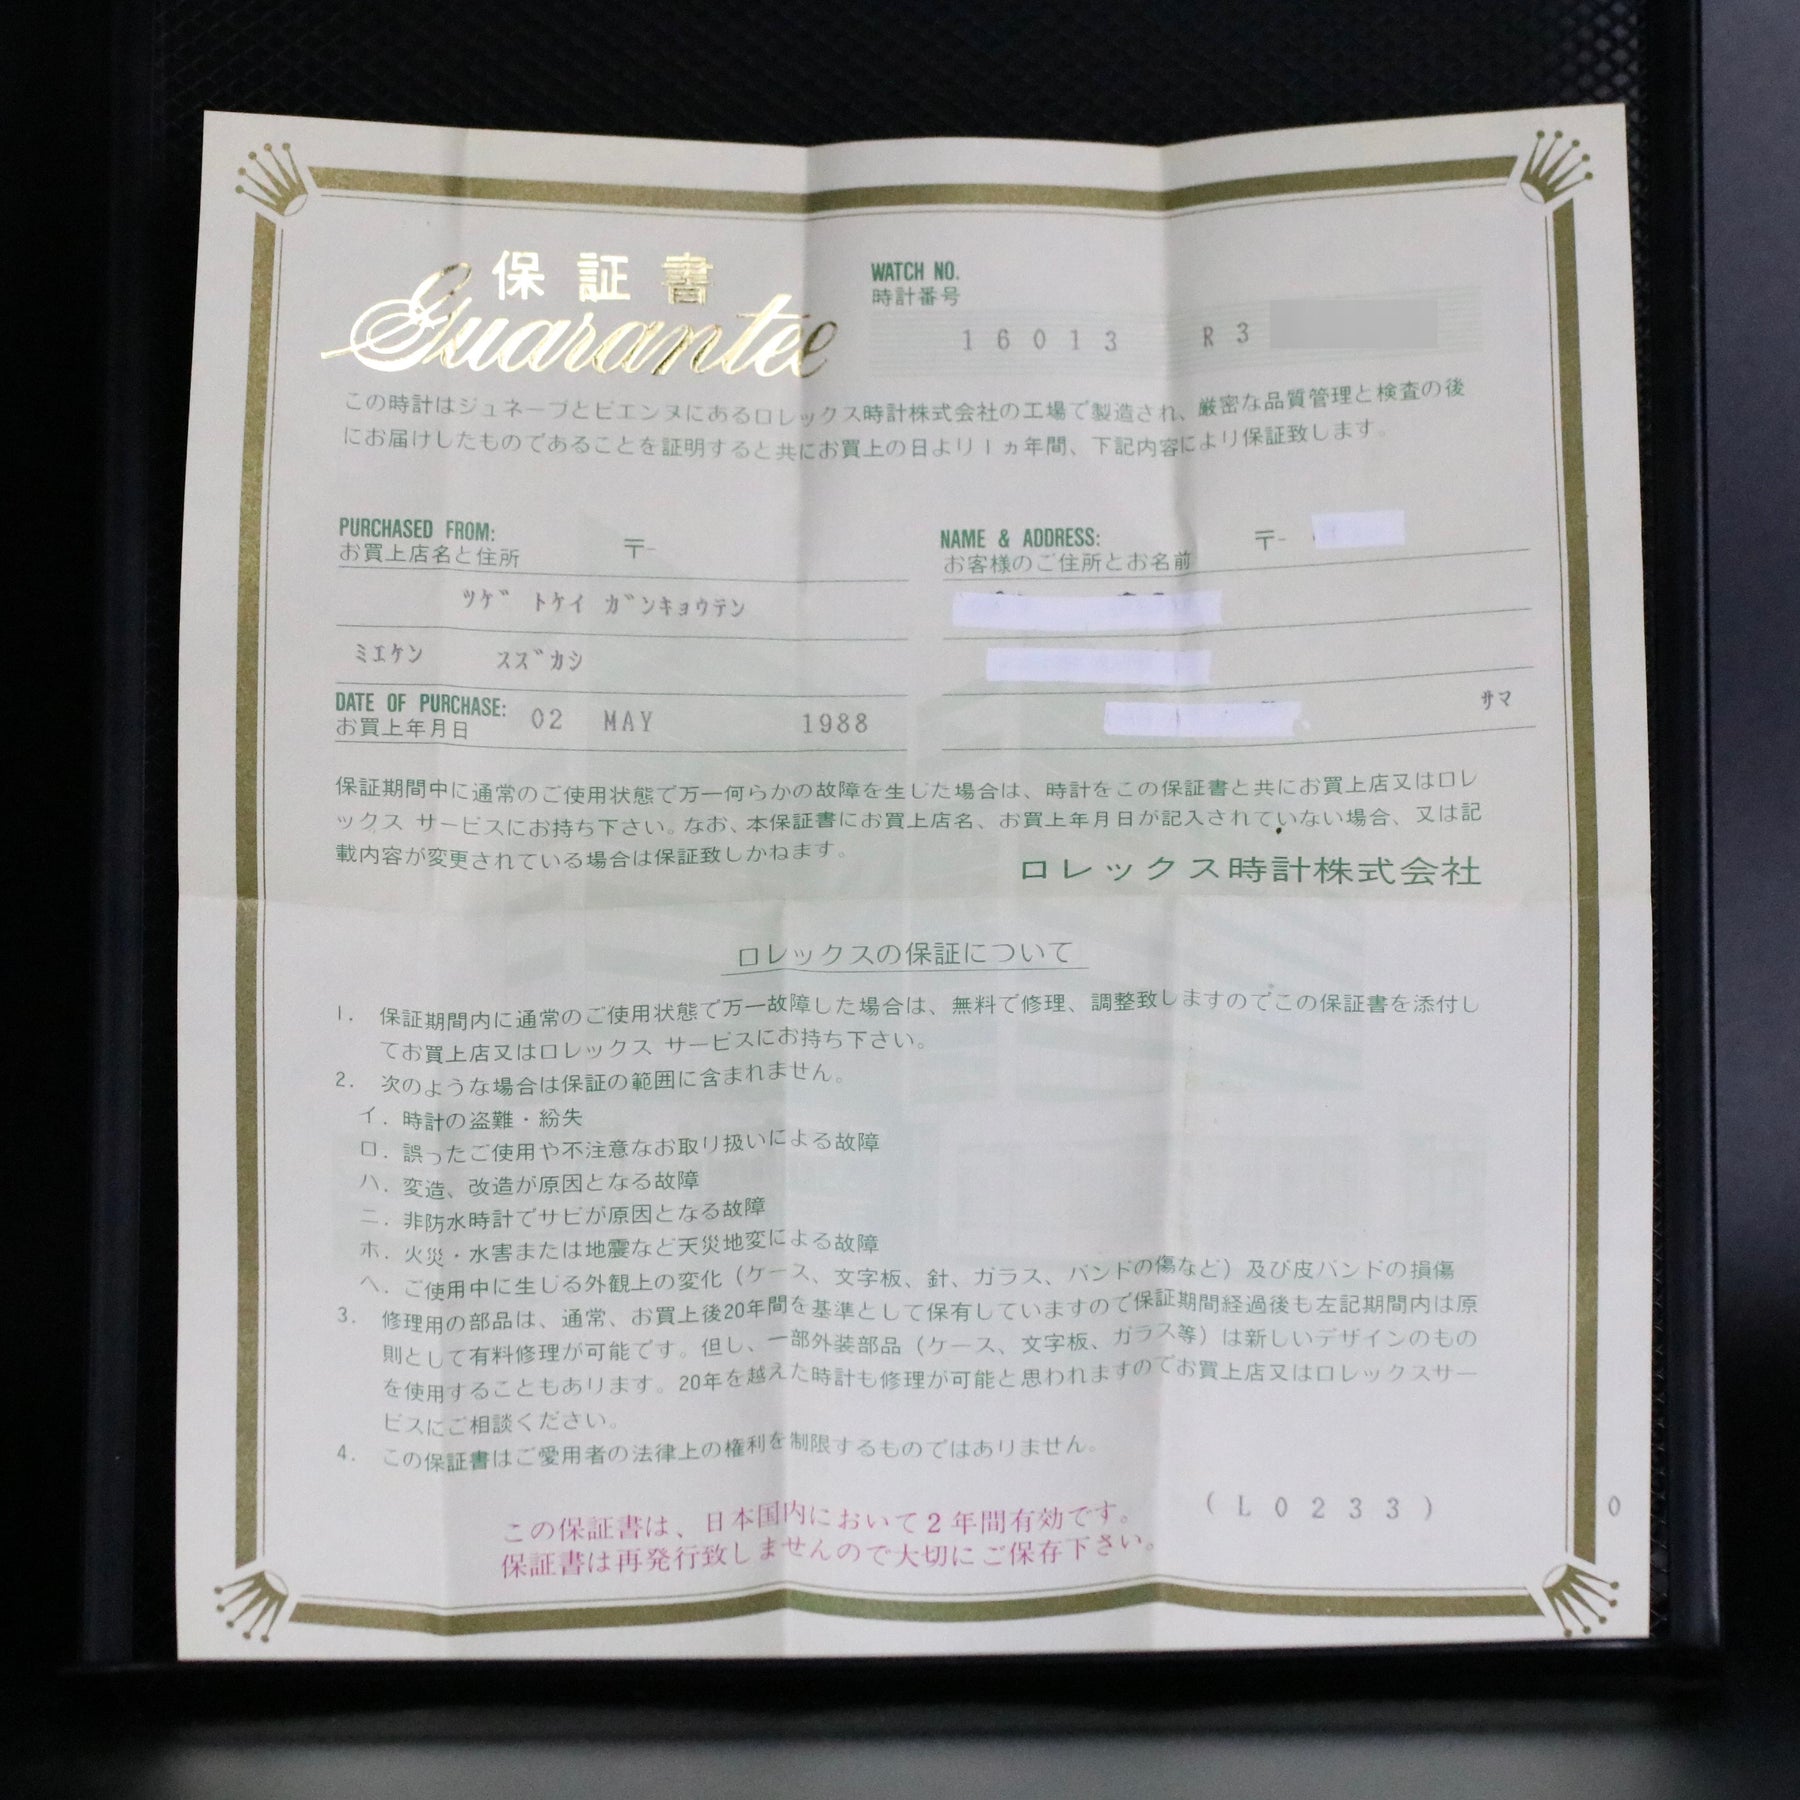 保証書
Guarantee
WATCH NO.
時計番号
16013 R3
この時計はジュネーブとビエンヌにあるロレックス時計株式会社の工場で製造され、厳密な品質管理と検査の後
にお届けしたものであることを証明すると共にお買上の日より1ヵ年間、下記内容により保証致します。
PURCHASED FROM:
お買上店名と住所 〒-
ツゲ゛トケイ ガ゛ンキョウテン
ミエケン スズ゛カシ
DATE OF PURCHASE:
お買上年月日 02 MAY 1988
NAME & ADDRESS: 〒-
お客様のご住所とお名前
サマ
保証期間中に通常のご使用状態で万一何らかの故障を生じた場合は、時計をこの保証書と共にお買上店又はロレ
ックス サービスにお持ち下さい。なお、本保証書にお買上店名、お買上年月日が記入されていない場合、又は記
載内容が変更されている場合は保証致しかねます。
ロレックス時計株式会社
ロレックスの保証について
1. 保証期間内に通常のご使用状態で万一故障した場合は、無料で修理、調整致しますのでこの保証書を添付し
てお買上店又はロレックス サービスにお持ち下さい。
2. 次のような場合は保証の範囲に含まれません。
イ. 時計の盗難・紛失
ロ. 誤ったご使用や不注意なお取り扱いによる故障
ハ. 変造、改造が原因となる故障
ニ. 非防水時計でサビが原因となる故障
ホ. 火災・水害または地震など天災地変による故障
ヘ. ご使用中に生じる外観上の変化（ケース、文字板、針、ガラス、バンドの傷など）及び皮バンドの損傷
3. 修理用の部品は、通常、お買上後20年間を基準として保有していますので保証期間経過後も左記期間内は原
則として有料修理が可能です。但し、一部外装部品（ケース、文字板、ガラス等）は新しいデザインのもの
を使用することもあります。20年を越えた時計も修理が可能と思われますのでお買上店又はロレックスサー
ビスにご相談ください。
4. この保証書はご愛用者の法律上の権利を制限するものではありません。
この保証書は、日本国内において2年間有効です。
保証書は再発行致しませんので大切にご保存下さい。
(L0233) 0